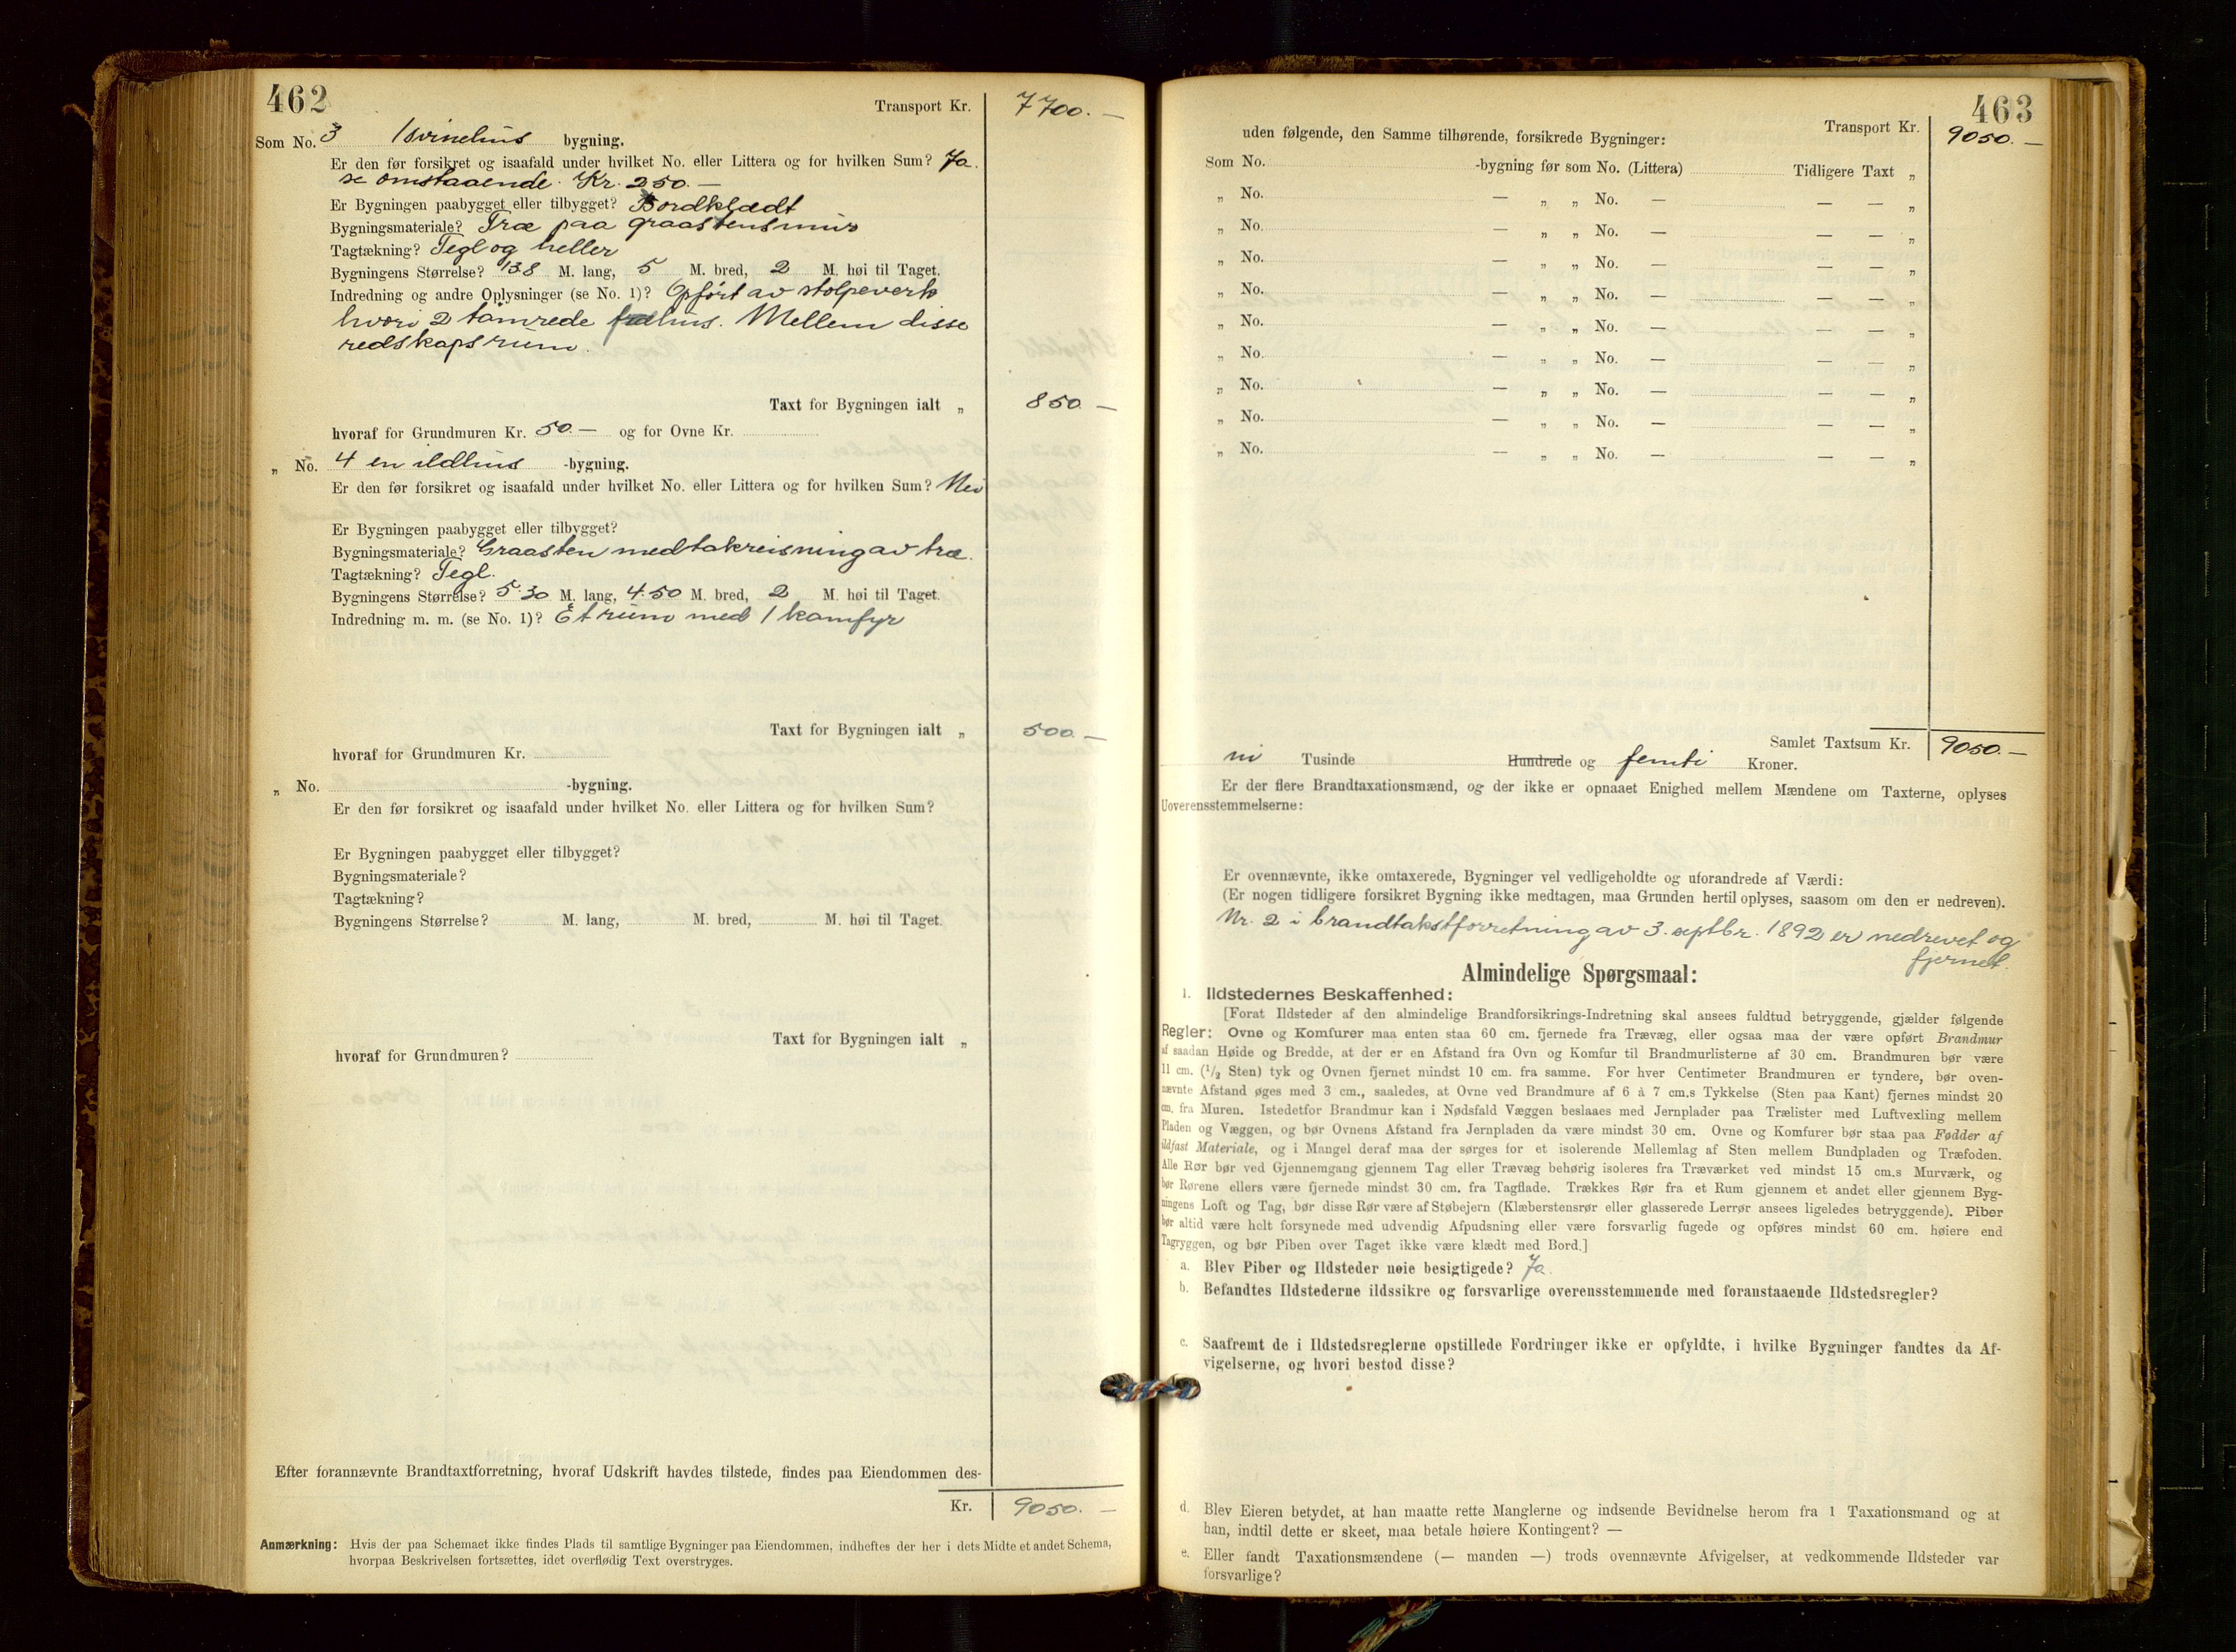 462
Transport Kr. 7700.—
Som No. 3 1 svinehus bygning.
Er den før forsikret og isaafald under hvilket No. eller Littera og for hvilken Sum? Ja.
se omstaaende. Kr. 250.—
Er Bygningen paabygget eller tilbygget? Bordklædt
Bygningsmateriale? Træ paa graastensmur
Tagtækning? Tegl og heller
Bygningens Størrelse? 13.8 M. lang, 5 M. bred, 2 M. høi til Taget.
Indredning og andre Oplysninger (se No. 1)? Opført av stolpeverk
hvori 2 tømrede fæhus. Mellem disse
redskapsrum.
Taxt for Bygningen ialt „ 850.—
hvoraf for Grundmuren Kr. 50.— og for Ovne Kr.
„ No. 4 en ildhus -bygning.
Er den før forsikret og isaafald under hvilket No. eller Littera og for hvilken Sum? Nei
Er Bygningen paabygget eller tilbygget?
Bygningsmateriale? Graasten med takreisning av træ.
Tagtækning? Tegl.
Bygningens Størrelse? 5.30 M. lang, 4.50 M. bred, 2 M. høi til Taget.
Indredning m. m. (se No. 1)? Et rum med 1 komfyr
Taxt for Bygningen ialt „ 500.—
hvoraf for Grundmuren Kr.
„ No. -bygning.
Er den før forsikret og isaafald under hvilket No. eller Littera og for hvilken Sum?
Er Bygningen paabygget eller tilbygget?
Bygningsmateriale?
Tagtækning?
Bygningens Størrelse? M. lang, M. bred, M. høi til Taget.
Taxt for Bygningen ialt „
hvoraf for Grundmuren?
Efter forannævnte Brandtaxtforretning, hvoraf Udskrift havdes tilstede, findes paa Eiendommen des-
Kr. 9050.—
Anmærkning: Hvis der paa Schemaet ikke findes Plads til samtlige Bygninger paa Eiendommen, indheftes der her i dets Midte et andet Schema,
hvorpaa Beskrivelsen fortsættes, idet overflødig Text overstryges.
463
Transport Kr. 9050.—
uden følgende, den Samme tilhørende, forsikrede Bygninger:
Som No. -bygning før som No. (Littera) Tidligere Taxt „
„ No. — „ „ No. — — — „
„ No. — „ „ No. — — — „
„ No. — „ „ No. — — — „
„ No. — „ „ No. — — — „
„ No. — „ „ No. — — — „
„ No. — „ „ No. — — — „
„ No. — „ „ No. — — — „
„ No. — „ „ No. — — — „
„ No. — „ „ No. — — — „
Samlet Taxtsum Kr. 9050.—
ni Tusinde Hundrede og femti Kroner.
Er der flere Brandtaxationsmænd, og der ikke er opnaaet Enighed mellem Mændene om Taxterne, oplyses
Uoverensstemmelserne:
Er ovennævnte, ikke omtaxerede, Bygninger vel vedligeholdte og uforandrede af Værdi:
(Er nogen tidligere forsikret Bygning ikke medtagen, maa Grunden hertil oplyses, saasom om den er nedreven).
Nr. 2 i brandtakstforretning av 3. septbr. 1892 er nedrevet og
fjernet.
Almindelige Spørgsmaal:
1. Ildstedernes Beskaffenhed:
[Forat Ildsteder af den almindelige Brandforsikrings-Indretning skal ansees fuldtud betryggende, gjælder følgende
Regler: Ovne og Komfurer maa enten staa 60 cm. fjernede fra Trævæg, eller ogsaa maa der være opført Brandmur
af saadan Høide og Bredde, at der er en Afstand fra Ovn og Komfur til Brandmurlisterne af 30 cm. Brandmuren bør være
11 cm. (1/2 Sten) tyk og Ovnen fjernet mindst 10 cm. fra samme. For hver Centimeter Brandmuren er tyndere, bør oven-
nævnte Afstand øges med 3 cm., saaledes, at Ovne ved Brandmure af 6 à 7 cm.s Tykkelse (Sten paa Kant) fjernes mindst 20
cm. fra Muren. Istedetfor Brandmur kan i Nødsfald Væggen beslaaes med Jernplader paa Trælister med Luftvexling mellem
Pladen og Væggen, og bør Ovnens Afstand fra Jernpladen da være mindst 30 cm. Ovne og Komfurer bør staa paa Fødder af
ildfast Materiale, og i Mangel deraf maa der sørges for et isolerende Mellemlag af Sten mellem Bundpladen og Træfoden.
Alle Rør bør ved Gjennemgang gjennem Tag eller Trævæg behørig isoleres fra Træværket ved mindst 15 cm.s Murværk, og
bør Rørene ellers være fjernede mindst 30 cm. fra Tagflade. Trækkes Rør fra et Rum gjennem et andet eller gjennem Byg-
ningens Loft og Tag, bør disse Rør være af Støbejern (Klæberstensrør eller glasserede Lerrør ansees ligeledes betryggende). Piber
bør altid være helt forsynede med udvendig Afpudsning eller være forsvarlig fugede og opføres mindst 60 cm. høiere end
Tagryggen, og bør Piben over Taget ikke være klædt med Bord.]
a. Blev Piber og Ildsteder nøie besigtigede? Ja.
b. Befandtes Ildstederne ildssikre og forsvarlige overensstemmende med foranstaaende Ildstedsregler?
c. Saafremt de i Ildstedsreglerne opstillede Fordringer ikke er opfyldte, i hvilke Bygninger fandtes da Af-
vigelserne, og hvori bestod disse?
d. Blev Eieren betydet, at han maatte rette Manglerne og indsende Bevidnelse herom fra 1 Taxationsmand og at
han, indtil dette er skeet, maa betale høiere Kontingent? —
e. Eller fandt Taxationsmændene (— manden —) trods ovennævnte Afvigelser, at vedkommende Ildsteder var
forsvarlige?